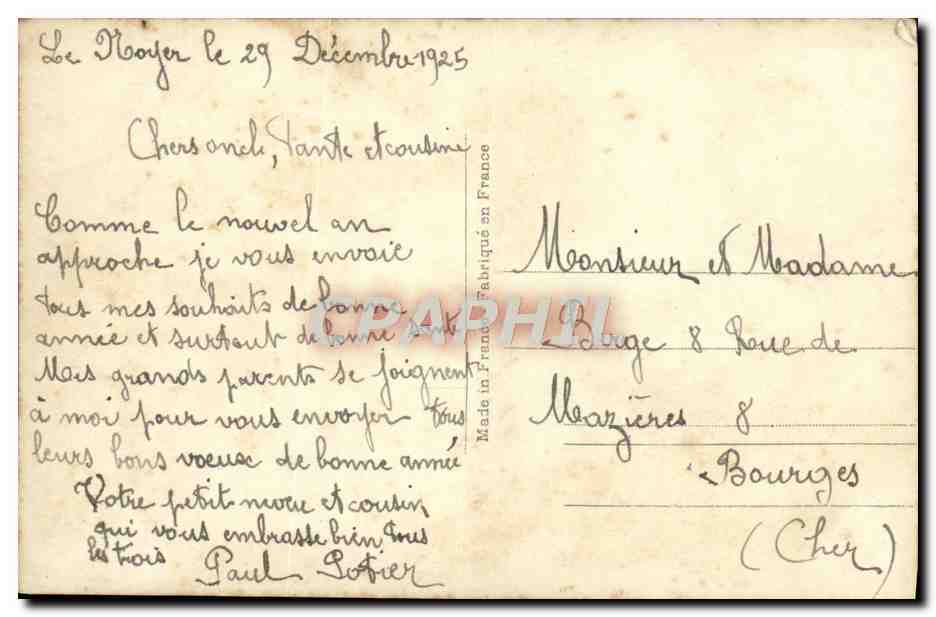 Le Noyer le 29 Décembre 1925
Chers oncle, tante et cousine
Comme le nouvel an
approche je vous envoie
tous mes souhaits de bonne
année et surtout de bonne santé
Mes grands parents se joignent
à moi pour vous envoyer tous
leurs bons voeux de bonne année
Votre petit neveu et cousin
qui vous embrasse bien tous
les trois
Paul Potier
Made in France - Fabriqué en France
Monsieur et Madame
Berge 8 Rue de
Mazières 8
Bourges
(Cher)
CPAPHIL